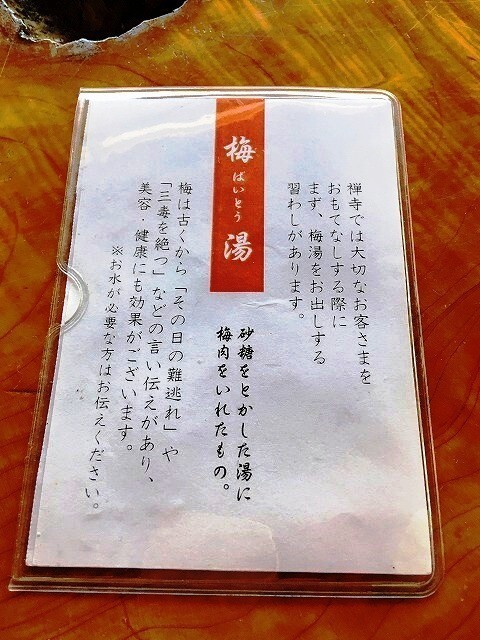 禅寺では大切なお客さまを
おもてなしする際に
まず、梅湯をお出しする
習わしがあります。
梅湯
ばいとう
砂糖をとかした湯に
梅肉をいれたもの。
梅は古くから「その日の難逃れ」や
「三毒を絶つ」などの言い伝えがあり、
美容・健康にも効果がございます。
※お水が必要な方はお伝えください。